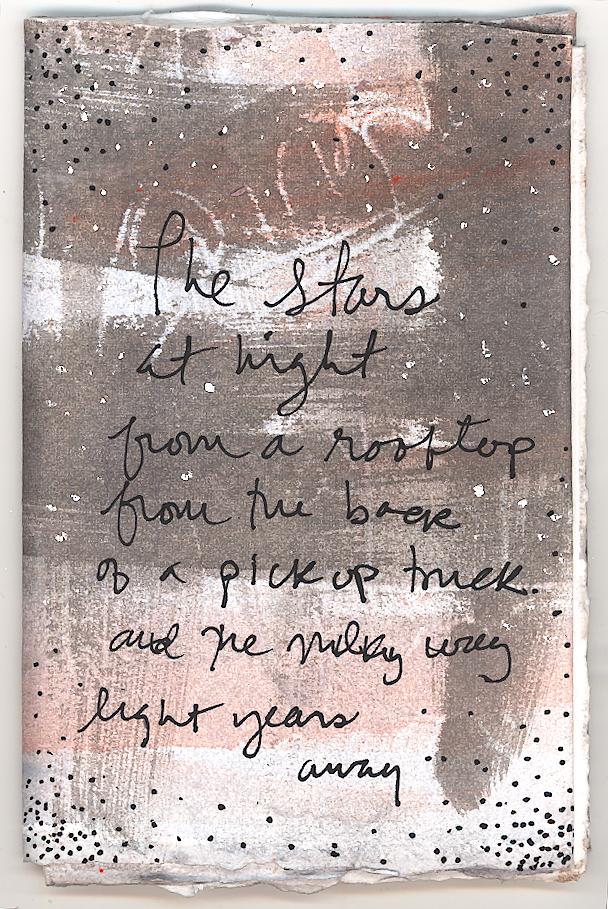 The stars
at night
from a rooftop
from the back
of a pickup truck.
and the milky way
light years
away